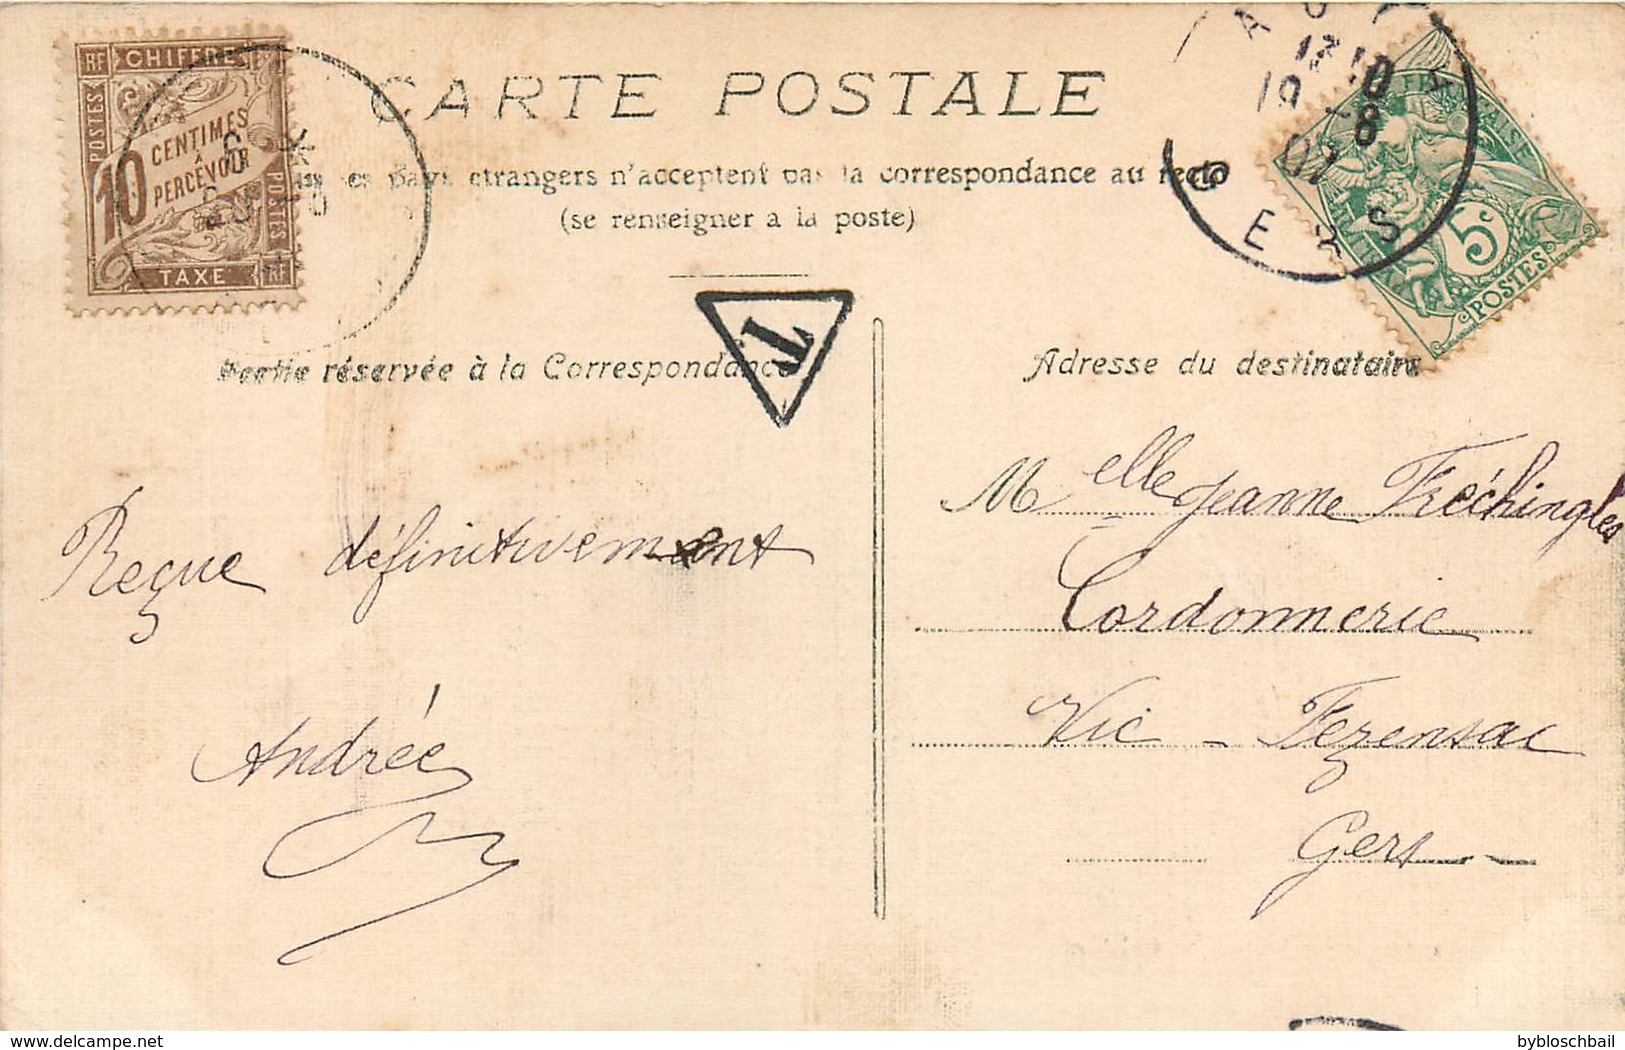 CARTE POSTALE
pays étrangers n'acceptent pas la correspondance au recto
(se renseigner a la poste)
RF CHIFFRE
POSTES
10 CENTIMES
A
PERCEVOIR
POSTES
TAXE RF
T
AUCH
GERS
5c
POSTES
Partie réservée à la Correspondance
Adresse du destinataire
Reçue définitivement
Andrée
Melle Jeanne Fréchingles
Cordonnerie
Vic - Fezensac
Gers
delcampe.net
bybloschbail